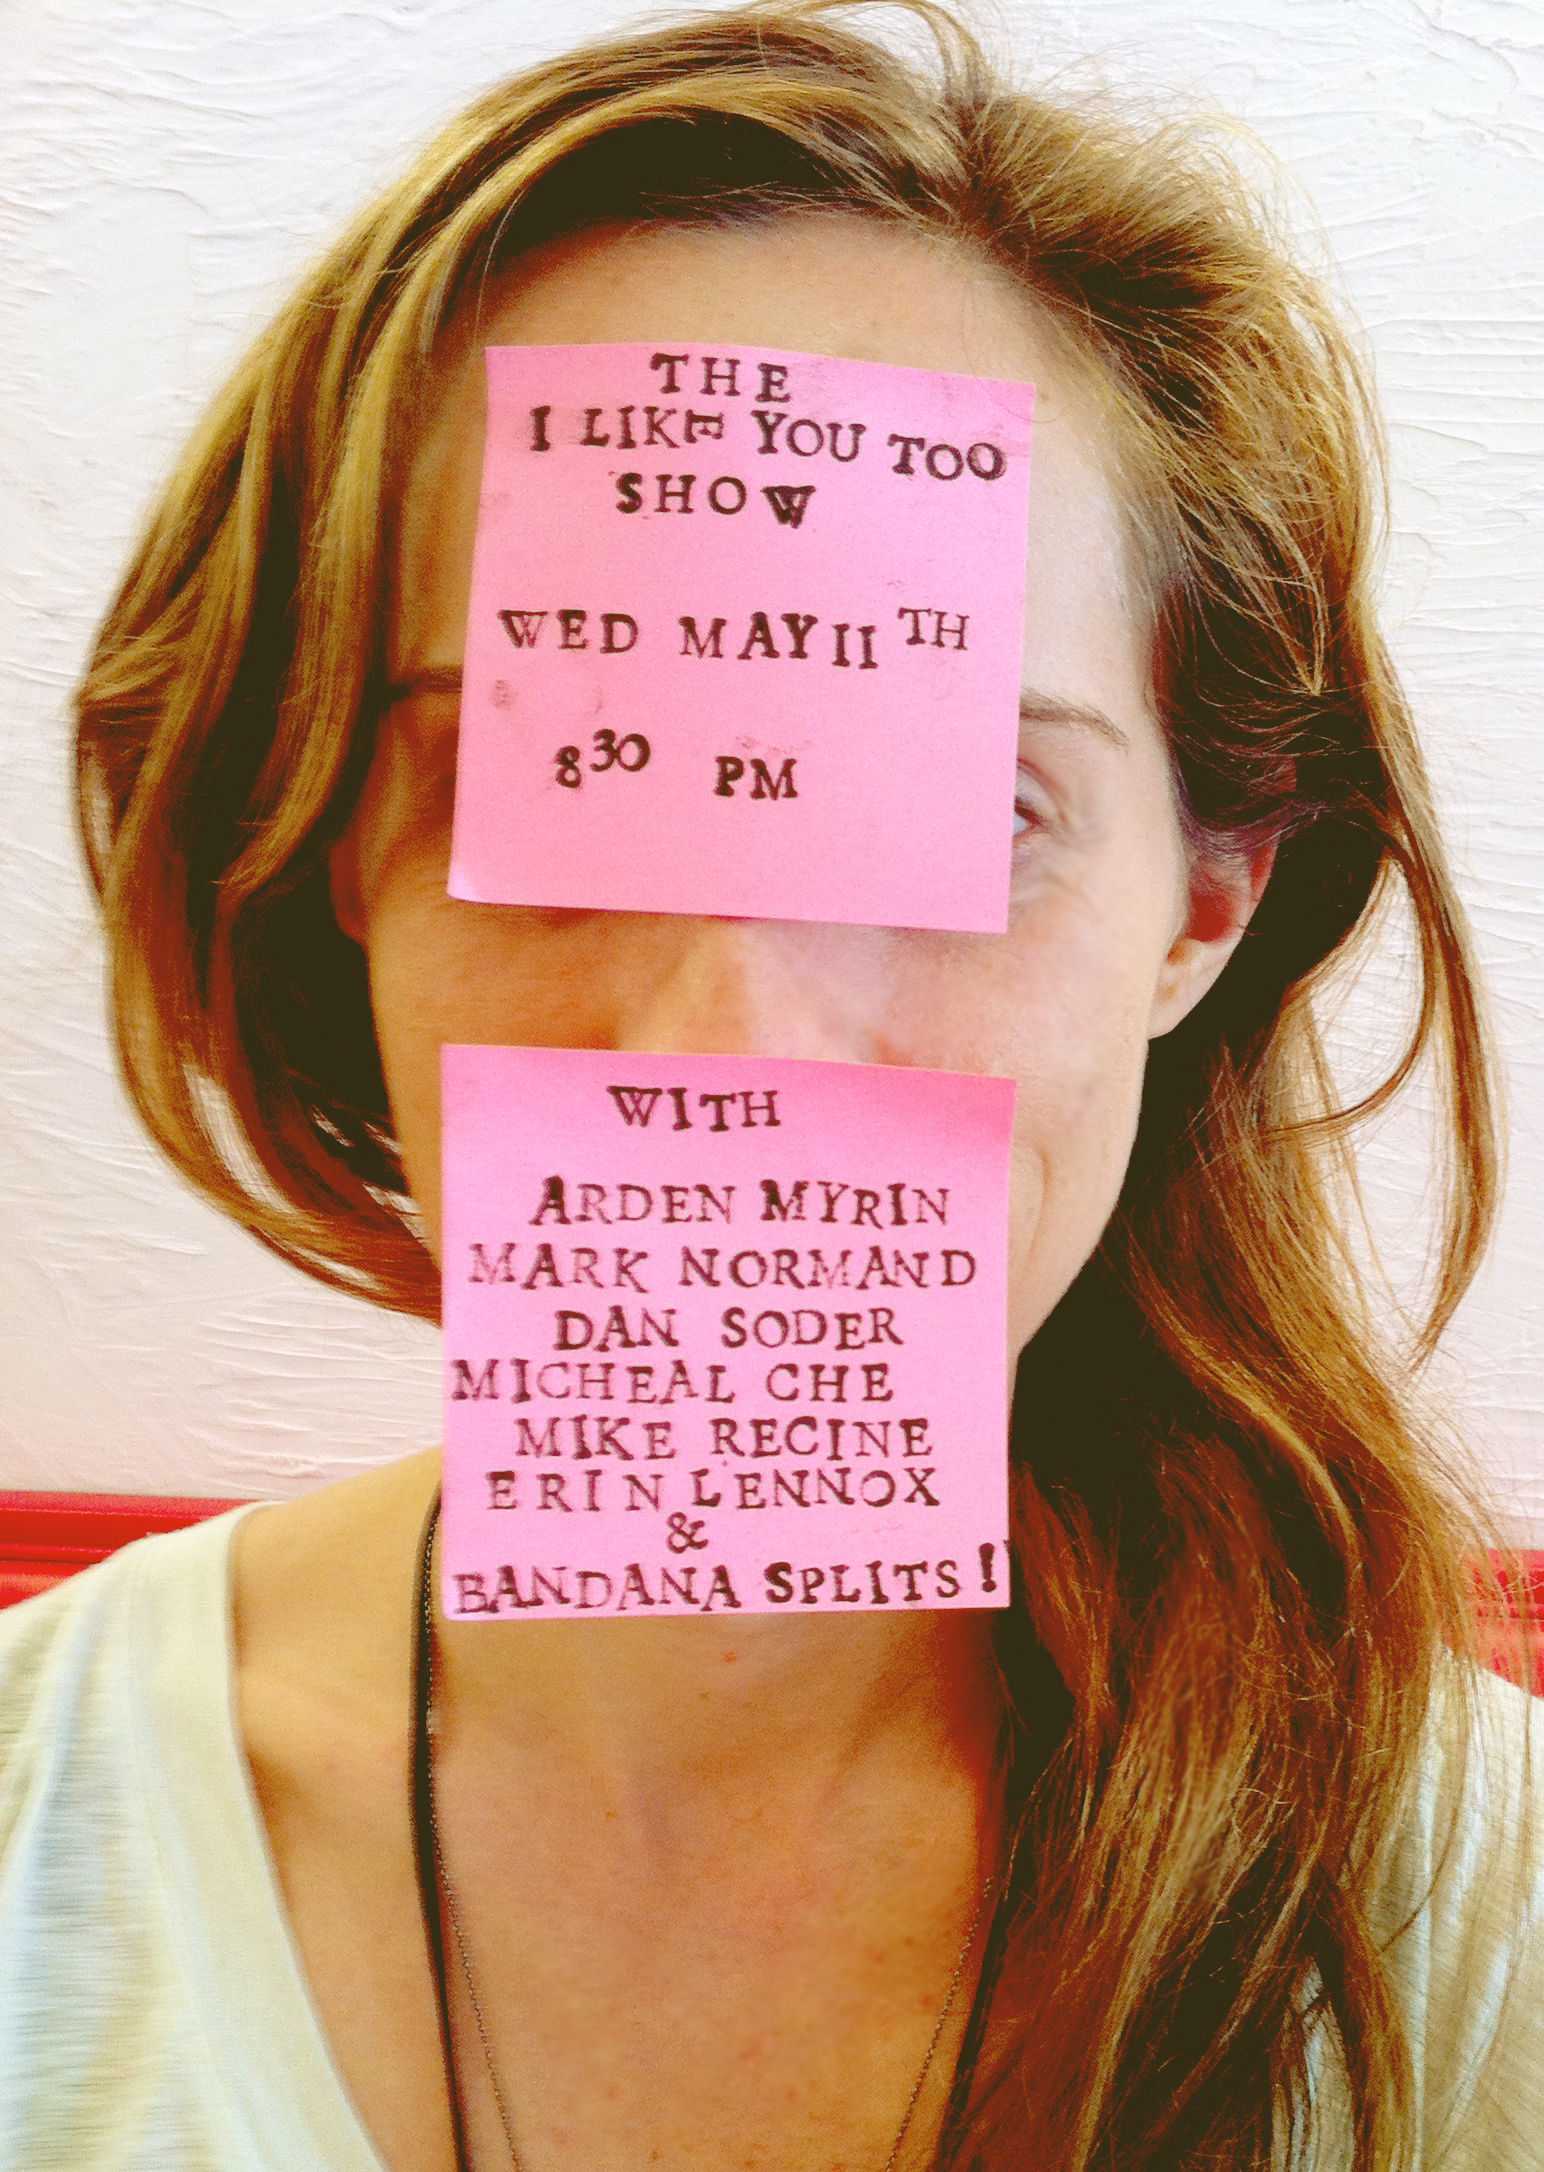 THE
I LIKE YOU TOO
SHOW
WED MAY 11TH
830 PM
WITH
ARDEN MYRIN
MARK NORMAND
DAN SODER
MICHEAL CHE
MIKE RECINE
ERIN LENNOX
&
BANDANA SPLITS!